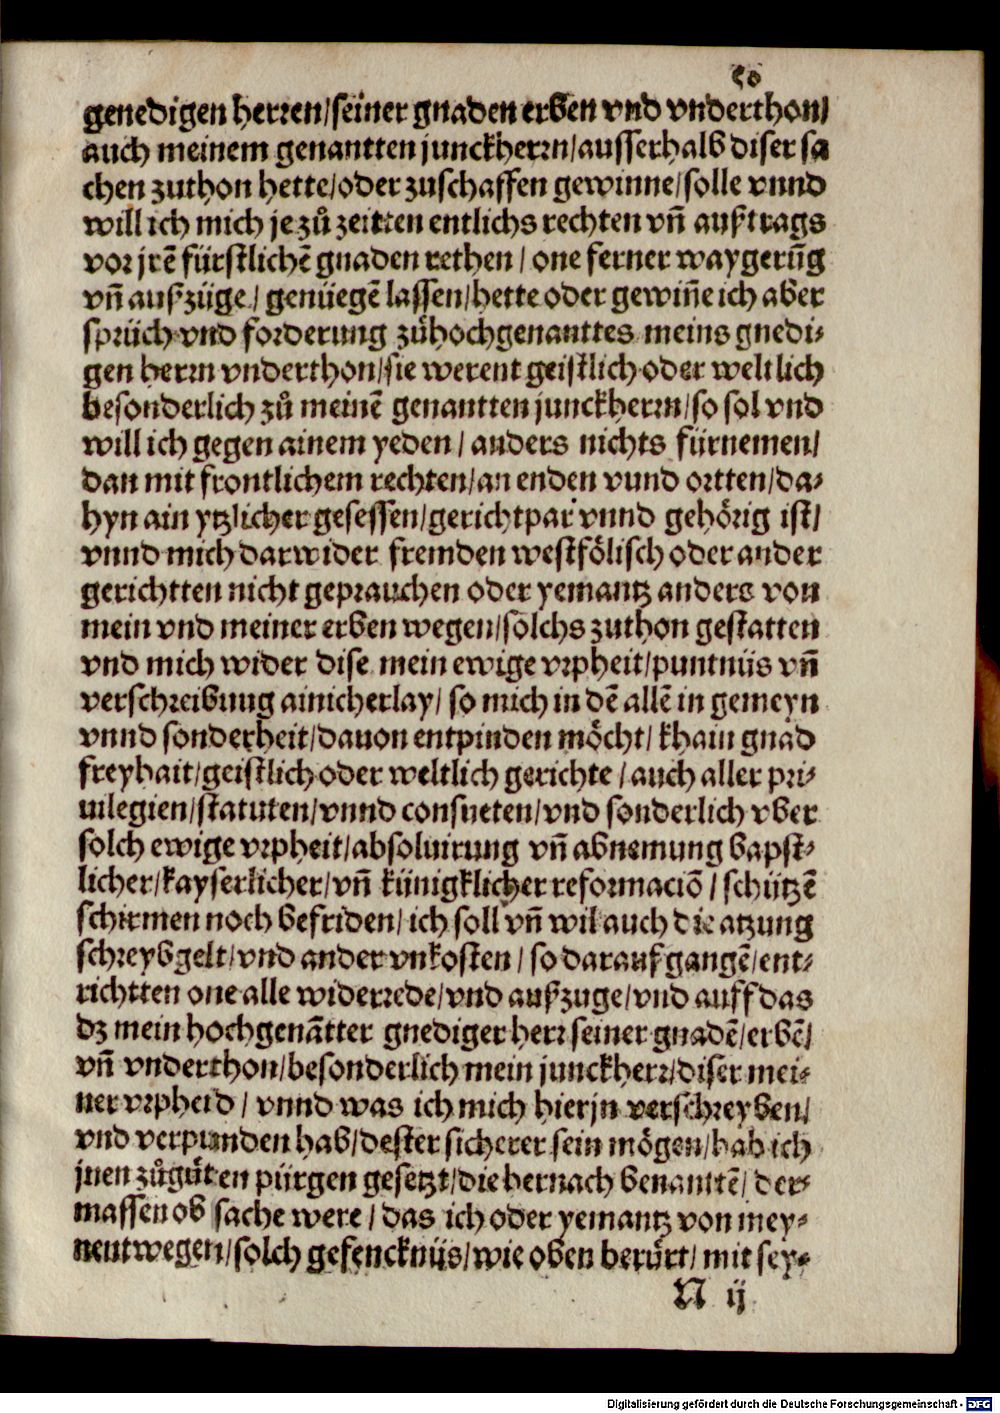 50
genedigen herren/seiner gnaden erben vnd vnderthon/
auch meinem genantten junckherrn/ausserhalb diser sa
chen zuthon hette/oder zuschaffen gewinne/solle vnnd
will ich mich je zů zeitten entlichs rechten vñ außtrags
vor jrẽ fürstlichẽ gnaden rethen/ one ferner waygerũg
vñ außzüge/ genüegẽ lassen/hette oder gewiñe ich aber
sprüch vnd forderung zůhochgenanttes meins gnedi-
gen herrn vnderthon/sie werent geistlich oder weltlich
besonderlich zů meinẽ genantten junckherrn/so sol vnd
will ich gegen ainem yeden/ anders nichts fürnemen/
dan mit frontlichem rechten/an enden vnnd ortten/da-
hyn ain ytzlicher gesessen/gerichtpar vnnd gehörig ist/
vnnd mich darwider fremden westfölisch oder ander
gerichtten nicht geprauchen oder yemantz anders von
mein vnd meiner erben wegen/solchs zuthon gestatten
vnd mich wider dise mein ewige vrpheit/puntnüs vñ
verschreibung ainicherlay/ so mich in dẽ allẽ in gemeyn
vnnd sonderheit/dauon entpinden möcht/ khain gnad
freyhait/geistlich oder weltlich gerichte/ auch aller pri-
uilegien/statuten/vnnd consueten/vnd sonderlich vber
solch ewige vrpheit/absoluirung vñ abnemung bapst-
licher/kayserlicher/vñ künigklicher reformaciõ/ schützẽ
schirmen noch befriden/ ich soll vñ wil auch die atzung
schreybgelt/vnd ander vnkosten/ so darauf gangẽ/ent-
richtten one alle widerrede/vnd außzuge/vnd auff das
dz mein hochgenãtter gnediger herr seiner gnadẽ/erbẽ/
vñ vnderthon/besonderlich mein junckherr/diser mei-
ner vrpheid/ vnnd was ich mich hierjn verschreyben/
vnd verpunden hab/dester sicherer sein mögen/hab ich
jnen zůgůten pürgen gesetzt/die hernach benanttẽ/ der-
massen ob sache were/ das ich oder yemantz von mey-
nentwegen/solch gefencknüs/wie oben berürt/ mit sey-
N ij
Digitalisierung gefördert durch die Deutsche Forschungsgemeinschaft - DFG